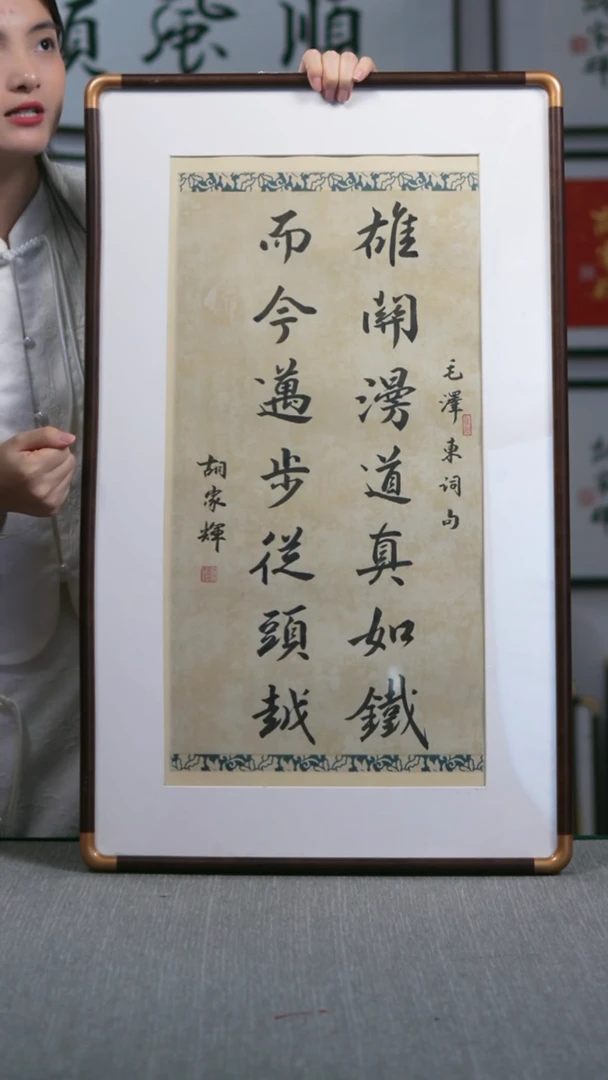 順風
毛澤東詞句
雄關漫道真如鐵
而今邁步從頭越
胡家輝